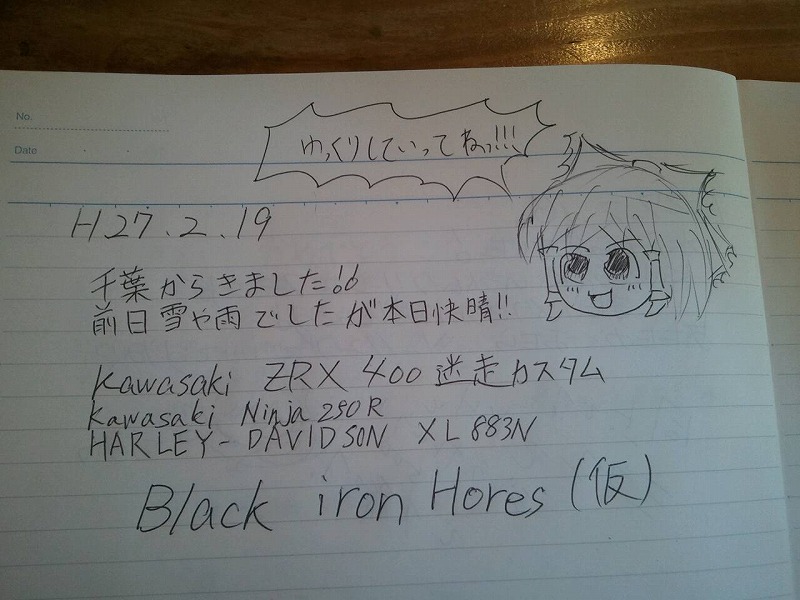 No.
Date
ゆっくりしていってねっ!!!
H27.2.19
千葉からきました!!
前日雪や雨でしたが本日快晴!!
Kawasaki ZRX 400 迷走カスタム
Kawasaki Ninja 250R
HARLEY-DAVIDSON XL883N
Black iron Hores (仮)